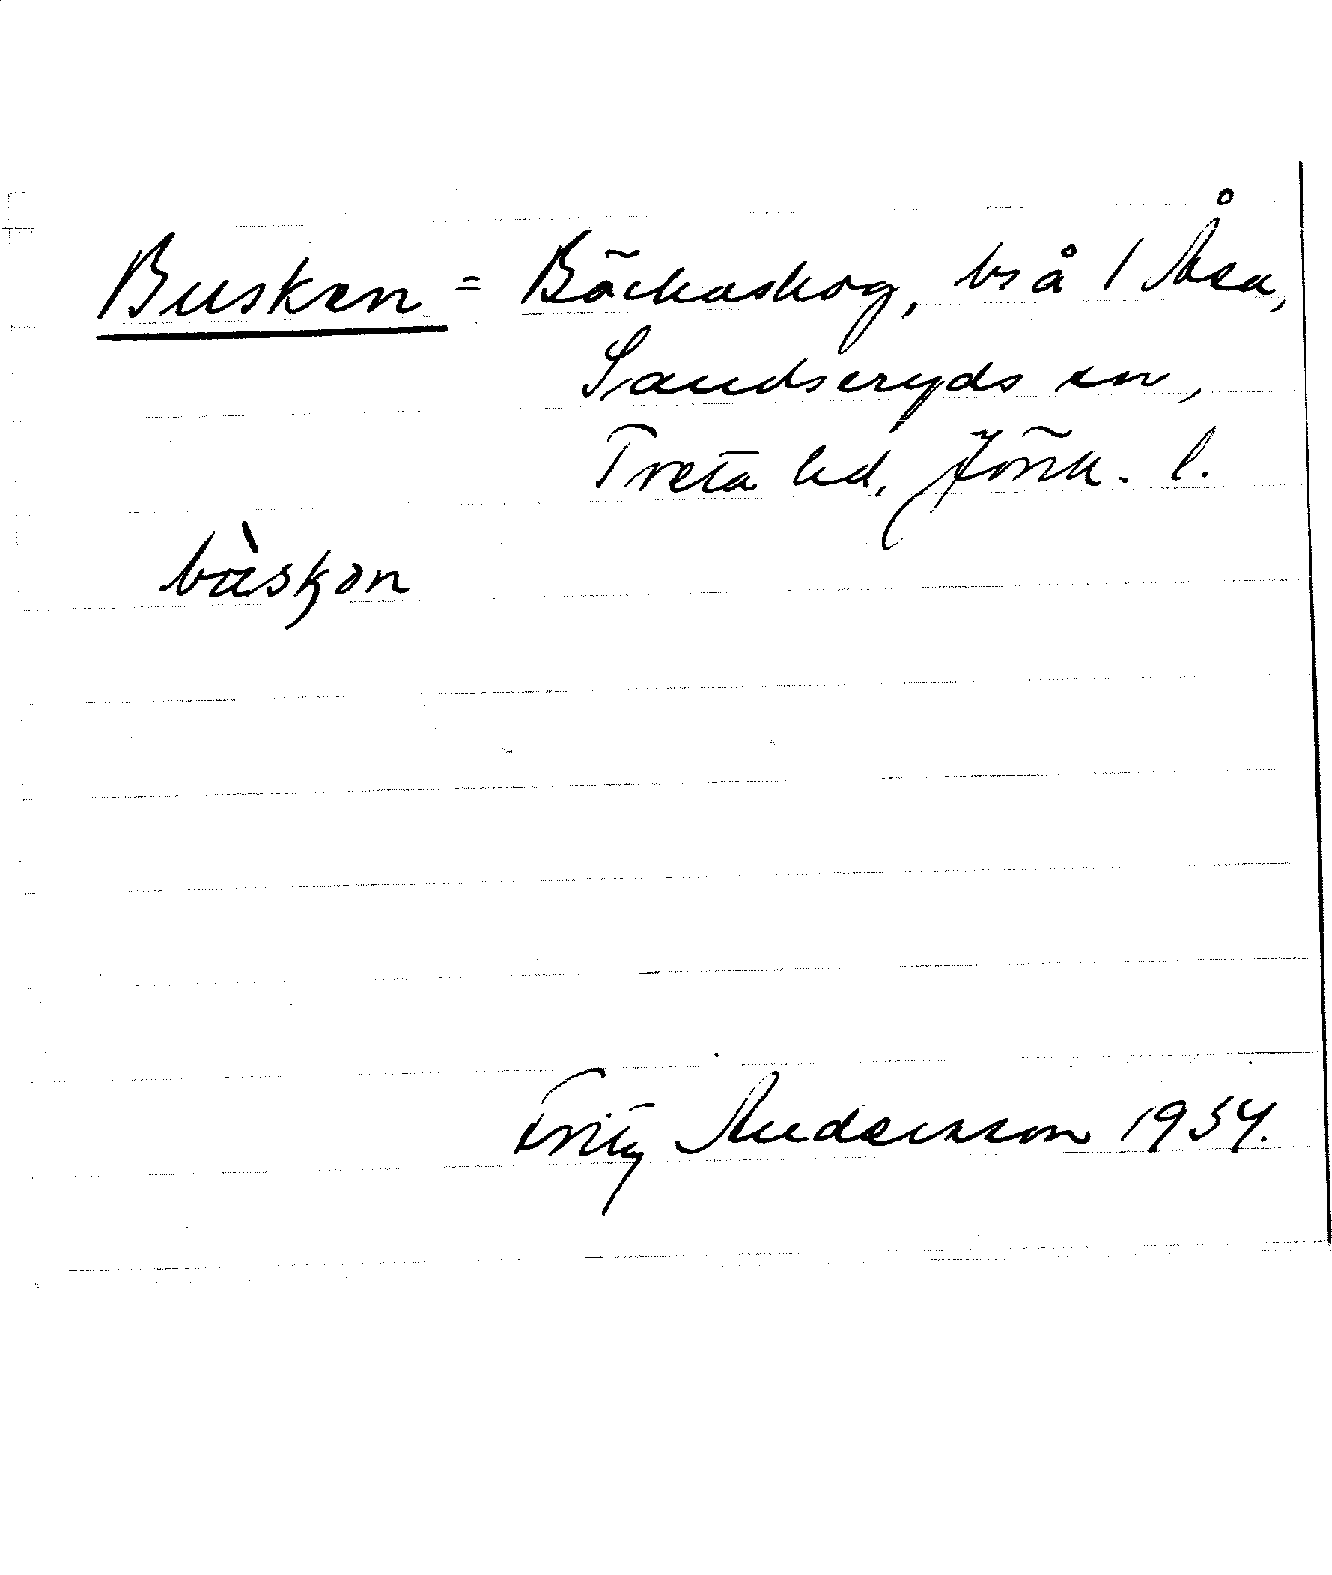 Busken = Bäckaskog, bs å 1 Åsa,
Sandseryds sn,
Tveta hd, Jönk. l.
bùskən
Fritz Andersson 1934.